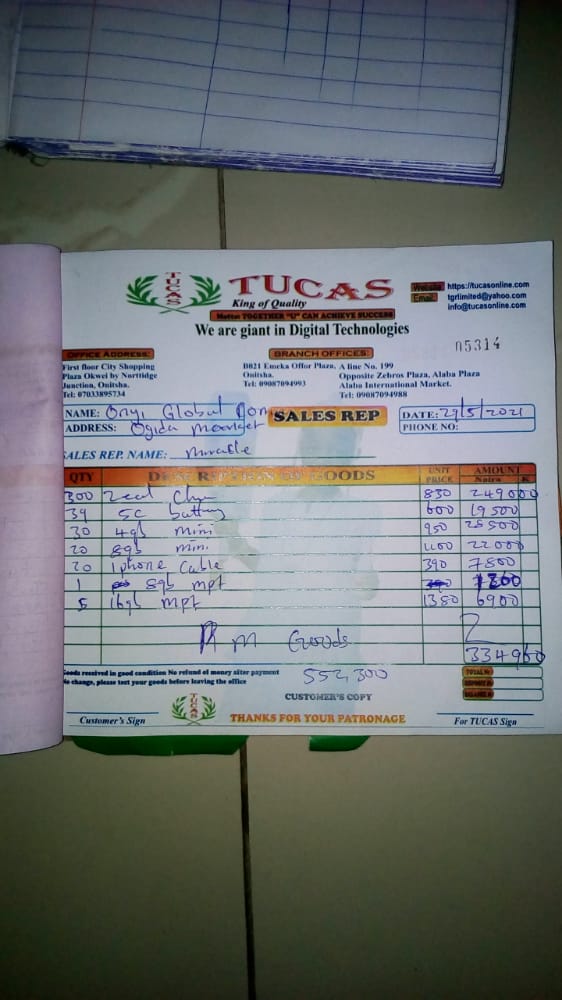 TUCAS
TUCAS
King of Quality
Motto: TOGETHER "U" CAN ACHIEVE SUCCESS
We are giant in Digital Technologies
Website: https://tucasonline.com
Email: tgrlimited@yahoo.com
info@tucasonline.com
05314
OFFICE ADDRESS:
First floor City Shopping
Plaza Okwei by Nortridge
Junction, Onitsha.
Tel: 07033895734
BRANCH OFFICES:
B021 Emeka Offor Plaza,
Onitsha.
Tel: 09087094993
A line No. 199
Opposite Zebros Plaza, Alaba Plaza
Alaba International Market.
Tel: 09087094988
NAME: Onyi Global
SALES REP
DATE: 29/5/2021
ADDRESS: Ogidi
PHONE NO:
SALES REP. NAME: Mirable
QTY DESCRIPTION OF GOODS UNIT PRICE AMOUNT
Naira K
300 830 249000
39 5c battry 19500
30 4gb mini 950 28500
20 8gb mini 1100 22000
20 iphone Cable 390 7800
1 8gb mpt
5 16gb mpt 1380 6900
Goods
334960
Goods received in good condition No refund of money after payment
No change, please test your goods before leaving the office
552,300
TOTAL N
CUSTOMER'S COPY
Customer's Sign
TUCAS
THANKS FOR YOUR PATRONAGE
For TUCAS Sign